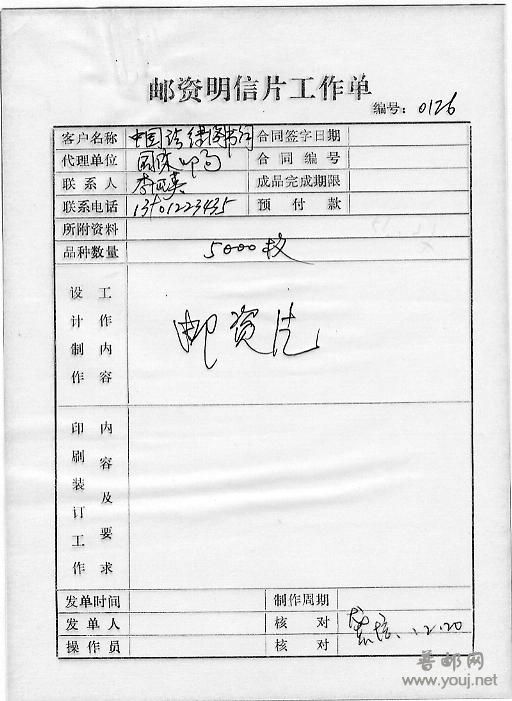 邮资明信片工作单
编号：0126
客户名称 中国法律图书 合同签字日期
代理单位 国际 合同编号
联系人 李 成品完成期限
联系电话 13701223435 预付款
所附资料
品种数量 5000枚
设计制作 工作内容 邮资片
印刷装订工作 内容及要求
发单时间 制作周期
发单人 核对 12.20
操作员 核对
普邮网
www.youj.net